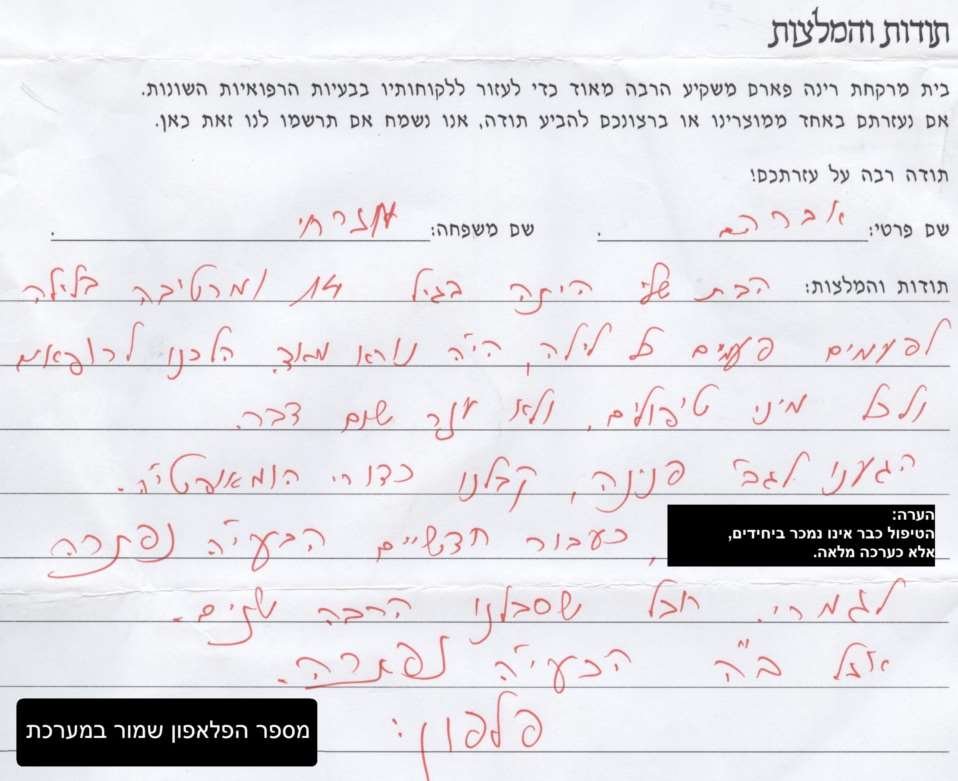 תודות והמלצות
בית מרקחת רינה פארם משקיע הרבה מאוד כדי לעזור ללקוחותיו בבעיות הרפואיות השונות.
אם נעזרתם באחד ממוצרינו או ברצונכם להביע תודה, אנו נשמח אם תרשמו לנו זאת כאן.
תודה רבה על עזרתכם!
שם פרטי: אברהם. שם משפחה: מזרחי.
תודות והמלצות: הבת שלי היתה בגיל 14 ומרטיבה בלילה
לפעמים פעמים כל לילה, היה נורא מאוד. הלכנו לרופאים
ולכל מיני טיפולים, ולא עזר שום דבר.
הגענו לגב' פנינה, קבלנו כדורי הומאופטיה.
הערה:
הטיפול כבר אינו נמכר ביחידים,
אלא כערכה מלאה.
, כעבור חדשיים הבעיה נפתרה
לגמרי. חבל שסבלנו הרבה שנים.
אבל ב"ה הבעיה נפתרה.
פלפון:
מספר הפלאפון שמור במערכת